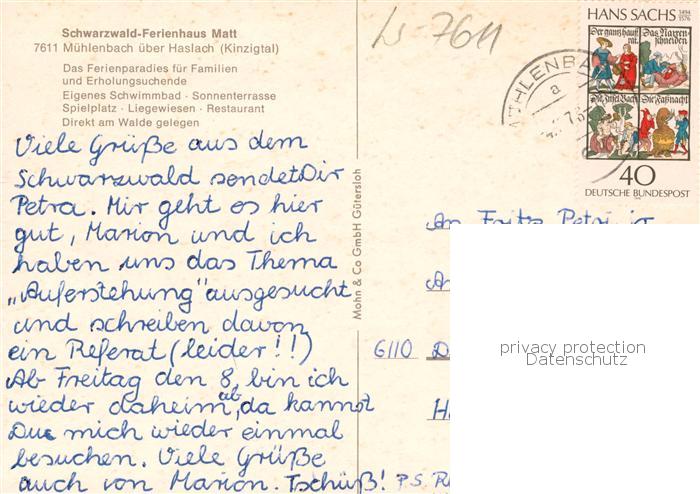 Schwarzwald-Ferienhaus Matt
7611 Mühlenbach über Haslach (Kinzigtal)
Das Ferienparadies für Familien
und Erholungsuchende
Eigenes Schwimmbad · Sonnenterrasse
Spielplatz · Liegewiesen · Restaurant
Direkt am Walde gelegen
Viele Grüße aus dem
Schwarzwald sendet Dir
Petra. Mir geht es hier
gut, Marion und ich
haben uns das Thema
„Auferstehung" ausgesucht
und schreiben davon
ein Referat (leider!!)
Ab Freitag den 8. bin ich
wieder daheim, ab da kannst
Du mich wieder einmal
besuchen. Viele Grüße
auch von Marion. Tschüß! P.S.
Mohn & Co GmbH Gütersloh
7611
HANS SACHS 1494 1576
Der gantz haußrat.
Das Narren schneiden
Die Faßnacht
40
DEUTSCHE BUNDESPOST
a
An Fritz
6110
privacy protection
Datenschutz